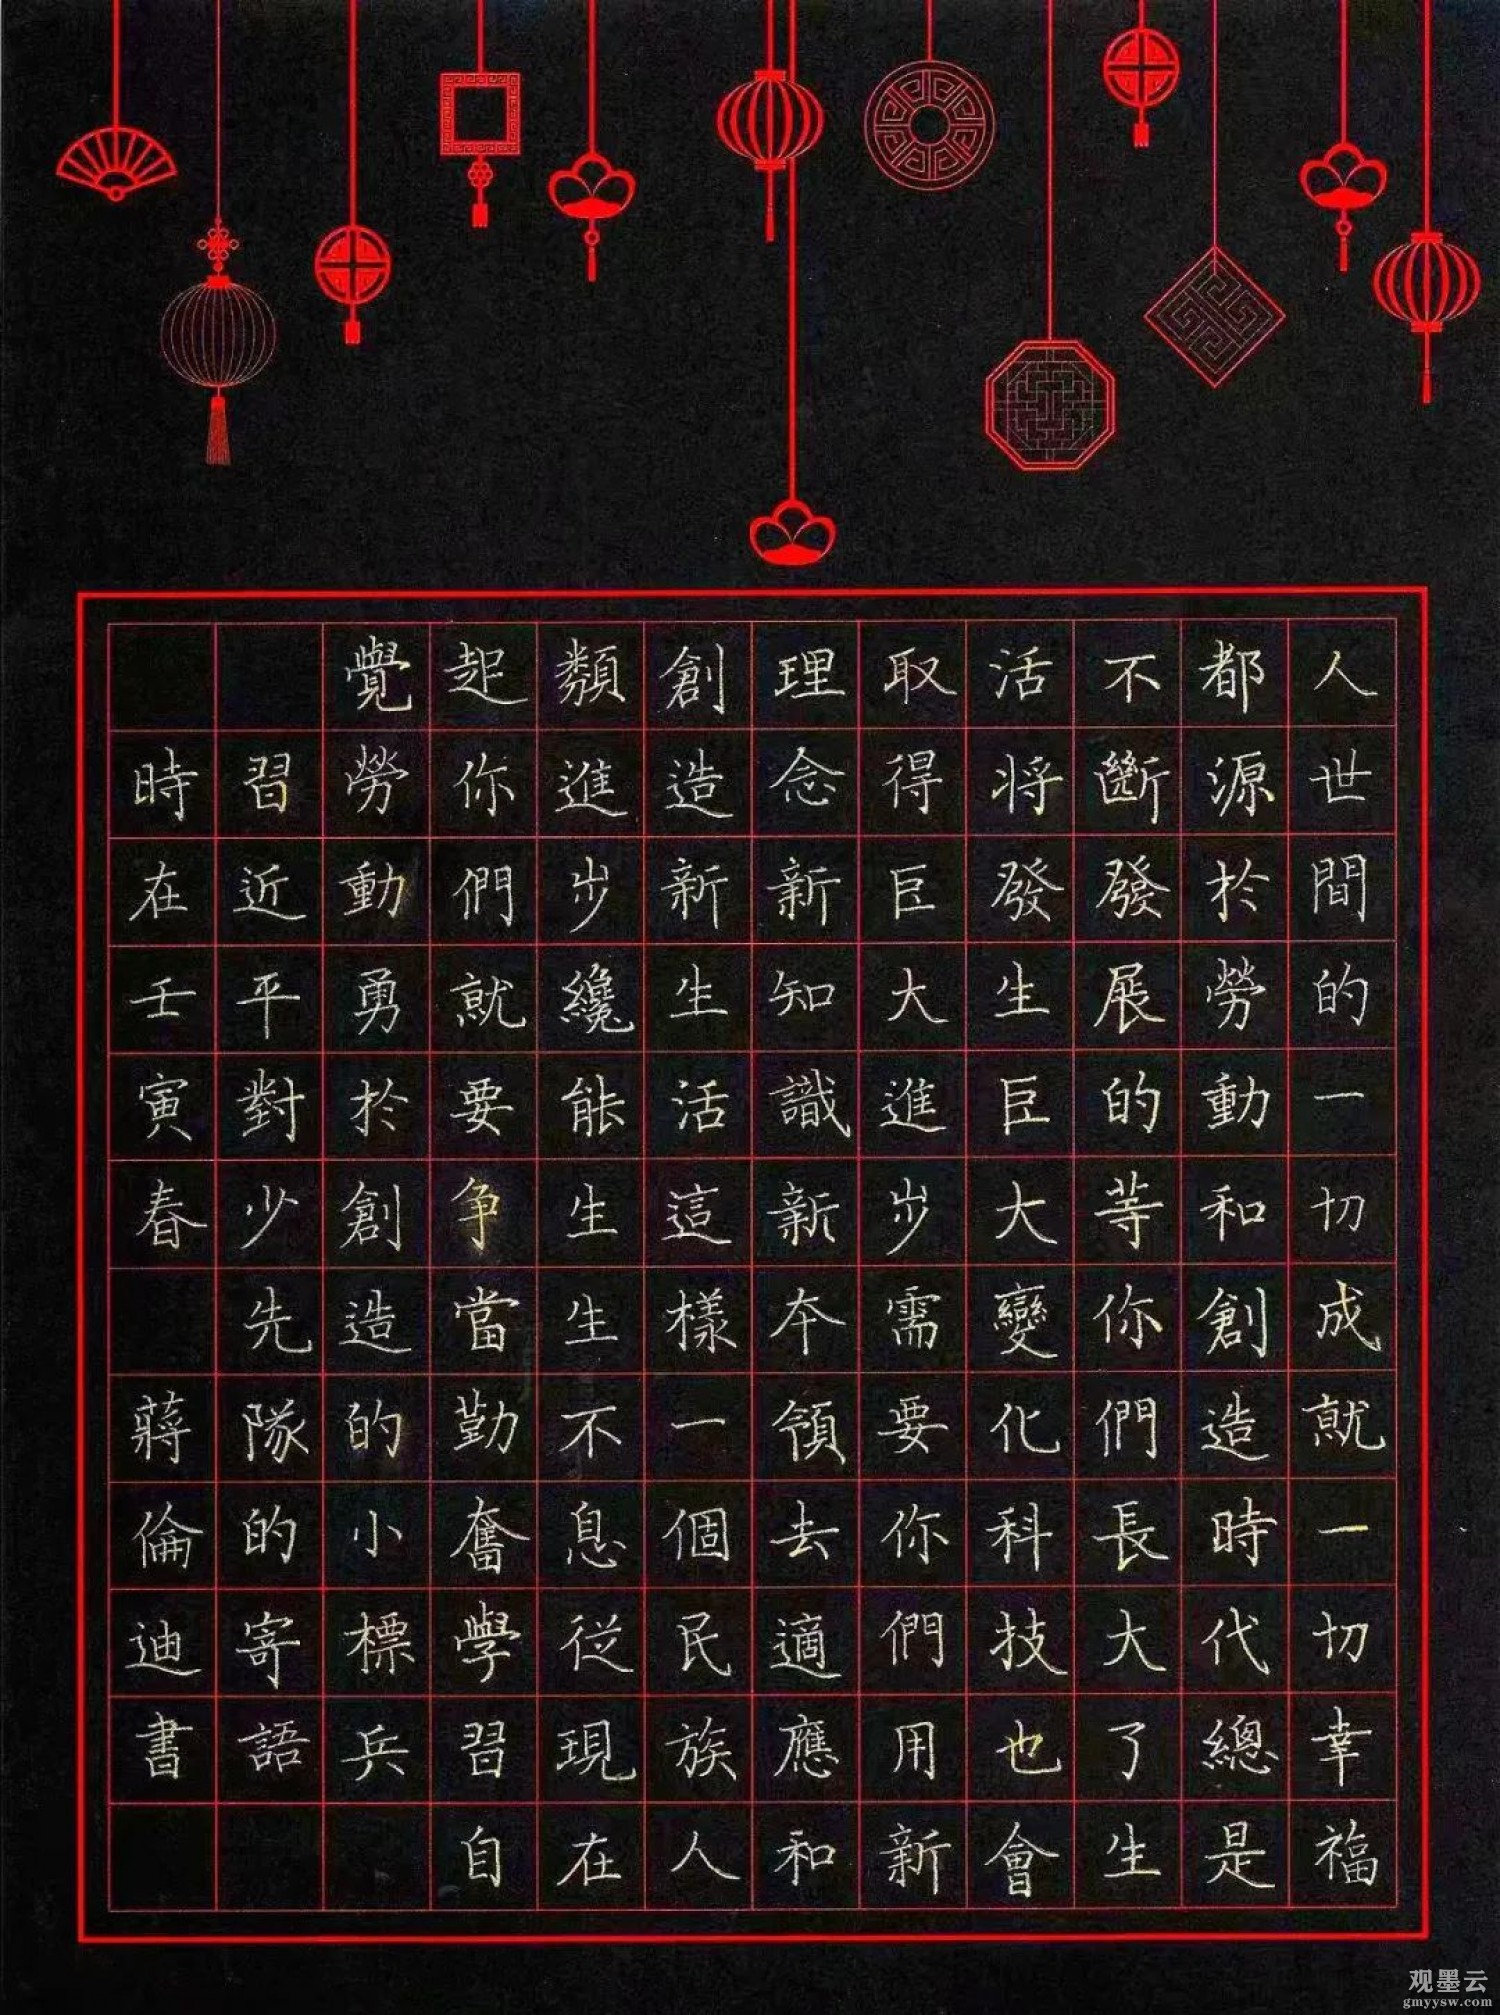 人世間的一切成就一切幸福
都源於勞動和創造時代總是
不斷發展的等你們長大了生
活将發生巨大變化科技也會
取得巨大進步需要你們用新
理念新知識新本領去適應和
創造新生活這樣一個民族人
類進步纔能生生不息従現在
起你們就要争當勤奮學習自
覺勞動勇於創造的小標兵
習近平對少先隊的寄語
時在壬寅春 蔣倫迪書
观墨云
gmyysw.com